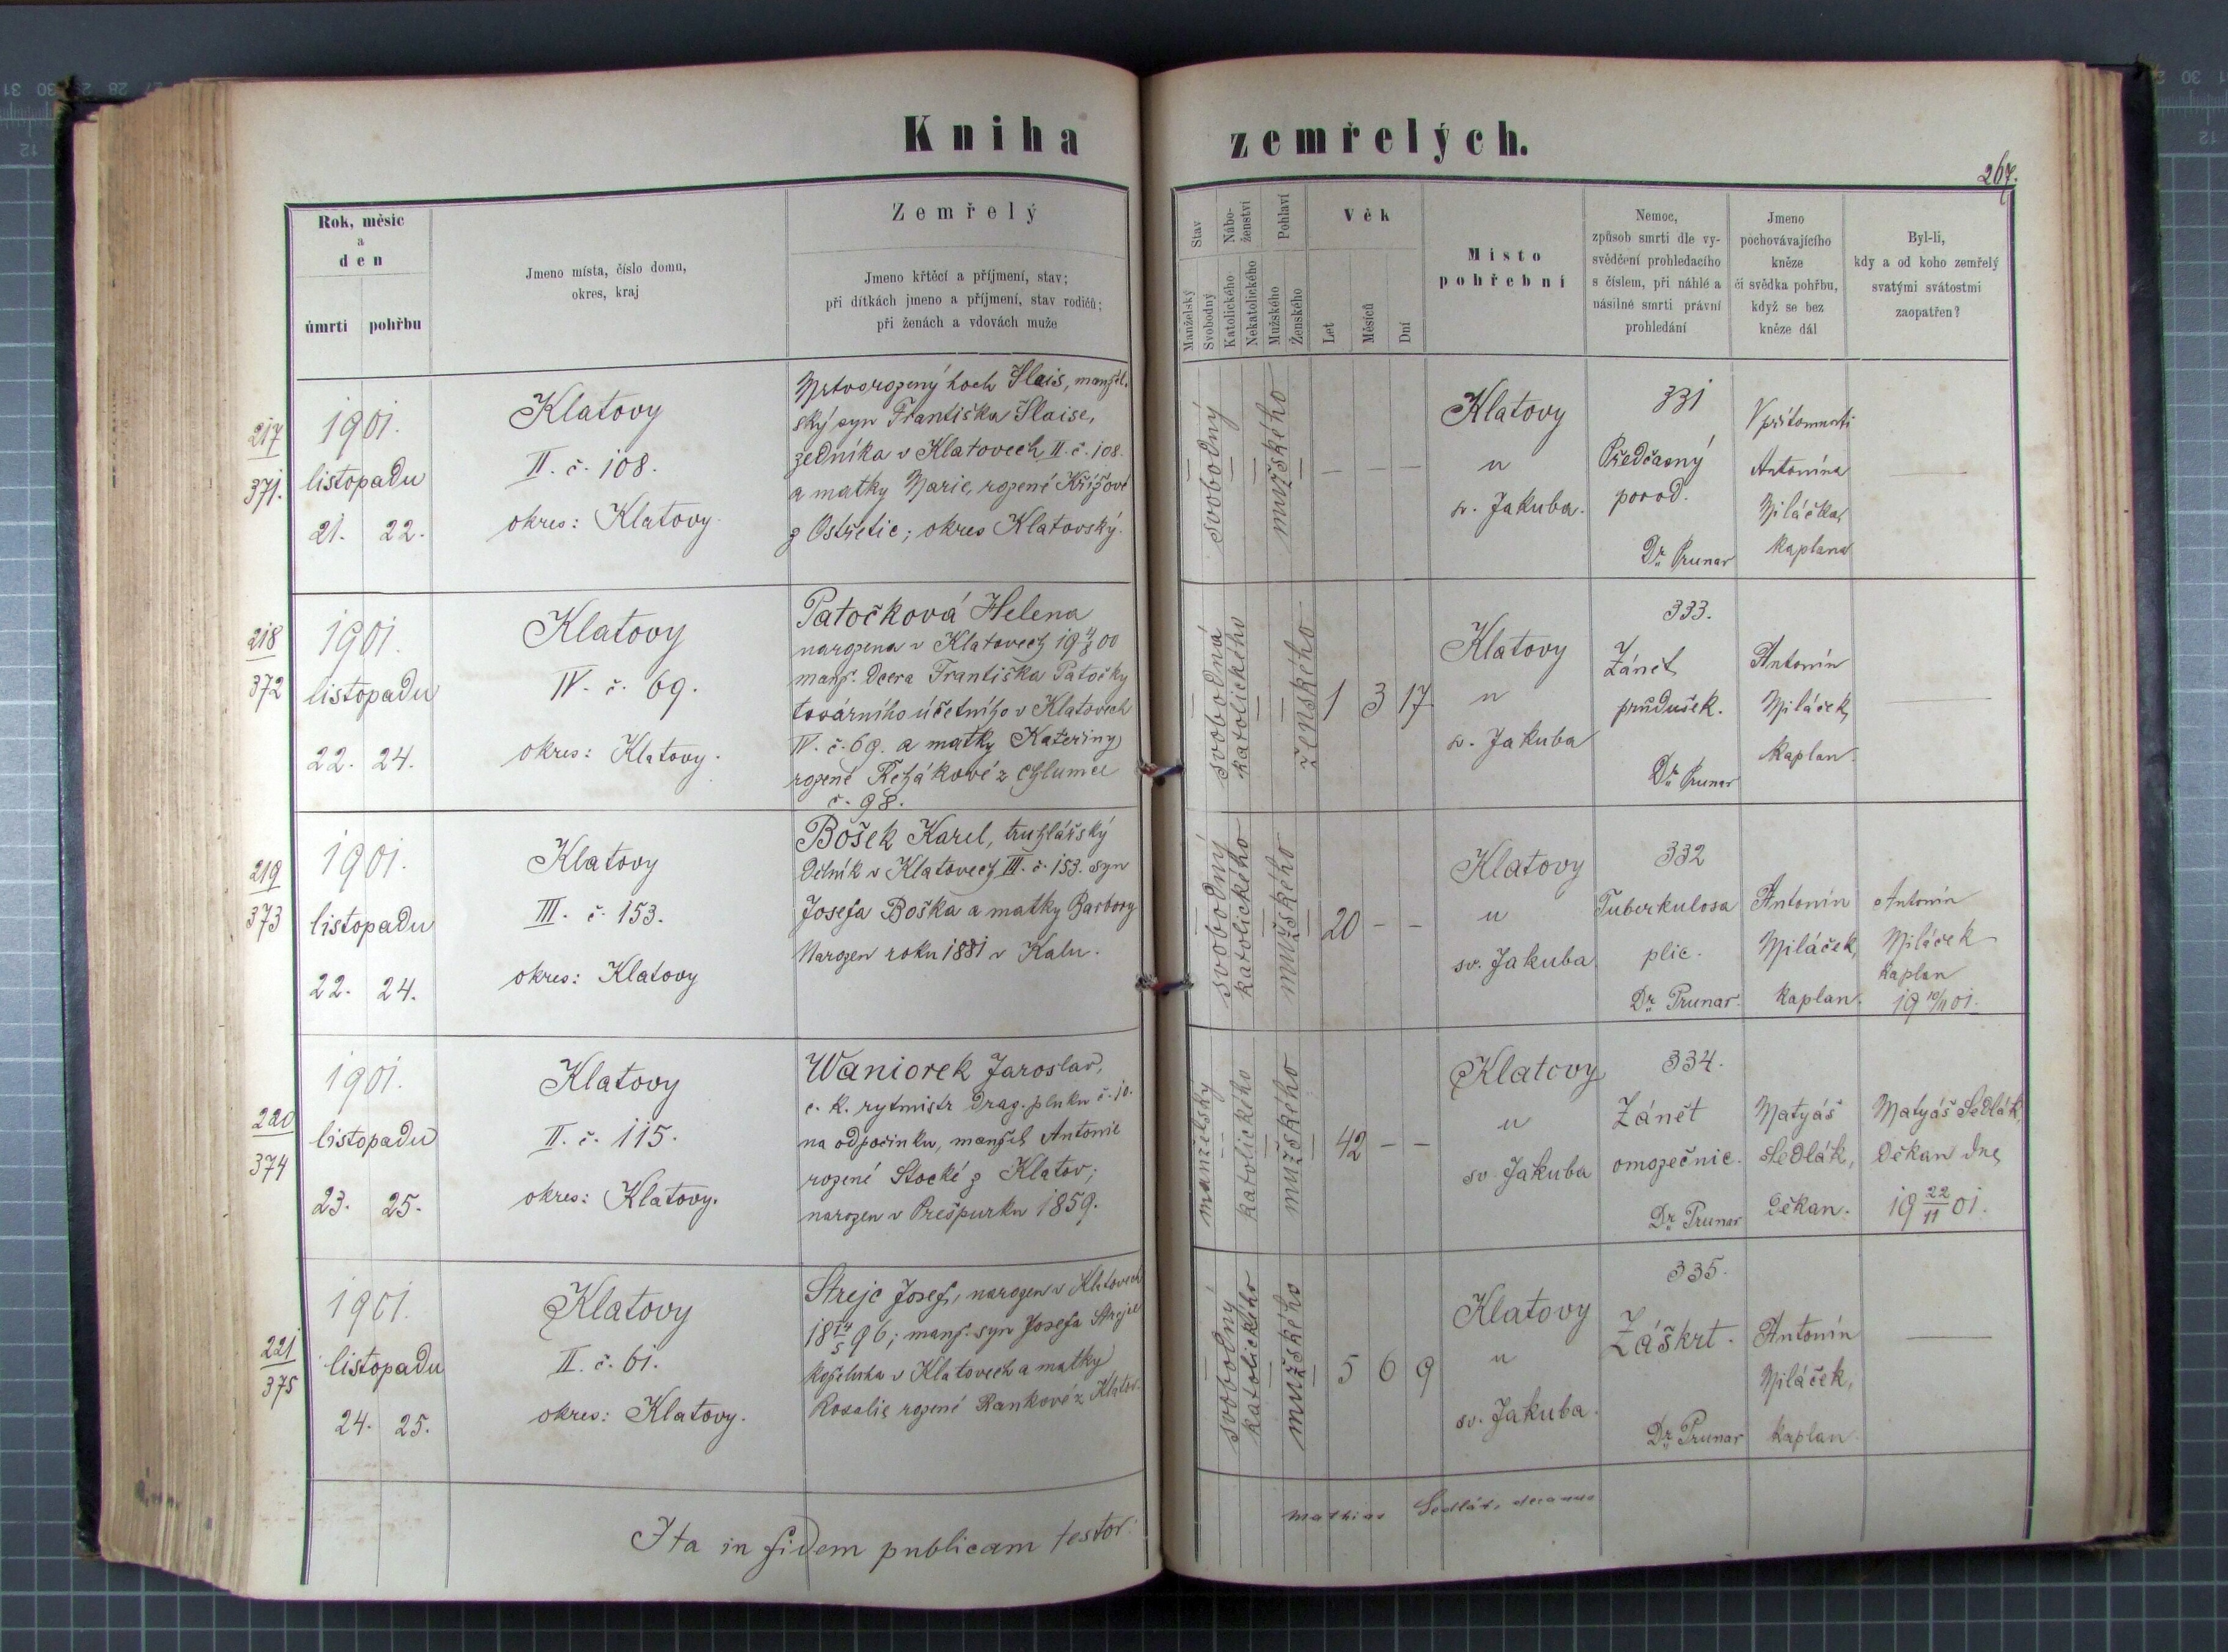 Kniha zemřelých.
267.
Rok, měsíc
a
den
úmrtí pohřbu
Jmeno místa, číslo domu,
okres, kraj
Zemřelý
Jmeno křtěcí a příjmení, stav;
při dítkách jmeno a příjmení, stav rodičů;
při ženách a vdovách muže
Stav
Manželský
Svobodný
Nábo-
ženství
Katolického
Nekatolického
Pohlaví
Mužského
Ženského
Věk
Let
Měsíců
Dní
Místo
pohřební
Nemoc,
způsob smrti dle vy-
svědčení prohledacího
s číslem, při náhlé a
násilné smrti právní
prohledání
Jmeno
pochovávajícího
kněze
či svědka pohřbu,
když se bez
kněze dál
Byl-li,
kdy a od koho zemřelý
svatými svátostmi
zaopatřen?
217
371.
1901.
listopadu
21. 22.
Klatovy
II. č. 108.
okres: Klatovy.
Mrtvorozený hoch Slais, manžel.
ský syn Františka Slaise,
zedníka v Klatovech II. č. 108.
a matky Marie, rozené Křížové
z Ostřetic; okres Klatovský.
svobodný
mužského
— — —
Klatovy
u
sv. Jakuba.
331
Předčasný
porod.
Dr. Prunar
V přítomnosti
Antonína
Miláčka,
kaplana
—
218
372
1901.
listopadu
22. 24.
Klatovy
IV. č. 69.
okres: Klatovy.
Patočková Helena
narozena v Klatovech 19 4/8 00
manž. dcera Františka Patočky
továrního účetního v Klatovech
IV. č. 69. a matky Kateřiny
rozené Řehákové z Chlumce
č. 98.
svobodná
katolického
ženského
1 3 17
Klatovy
u
sv. Jakuba
333.
Zánět
průdušek.
Dr. Prunar
Antonín
Miláček,
kaplan.
—
219
373
1901.
listopadu
22. 24.
Klatovy
III. č. 153.
okres: Klatovy
Bošek Karel, truhlářský
dělník v Klatovech III. č. 153. syn
Josefa Boška a matky Barbory
Narozen roku 1881 v Kalu.
svobodný
katolického
mužského
20 - -
Klatovy
u
sv. Jakuba
332
Tuberkulosa
plic.
Dr. Prunar.
Antonín
Miláček,
kaplan.
Antonín
Miláček
kaplan
19 10/11 01.
220
374
1901.
listopadu
23. 25.
Klatovy
II. č. 115.
okres: Klatovy.
Waniorek Jaroslav,
c. k. rytmistr drag. pluku č. 10.
na odpočinku, manžel Antonie
rozené Stocké z Klatov;
narozen v Prešpurku 1859.
manželský
katolického
mužského
42 - -
Klatovy
u
sv. Jakuba
334.
Zánět
omozečnic.
Dr. Prunar
Matyáš
Sedlák,
děkan.
Matyáš Sedlák,
děkan dne
19 22/11 01.
221
375
1901.
listopadu
24. 25.
Klatovy
II. č. 61.
okres: Klatovy.
Strejc Josef, narozen v Klatovech
18 14/5 96; manž. syn Josefa Strejce
koželuha v Klatovech a matky
Rosalie rozené Rankové z Klatov.
svobodný
katolického
mužského
5 6 9
Klatovy
u
sv. Jakuba.
335.
Záškrt.
Dr. Prunar
Antonín
Miláček,
kaplan.
—
Ita in fidem publicam testor.
Mathias Sedlák, decanus